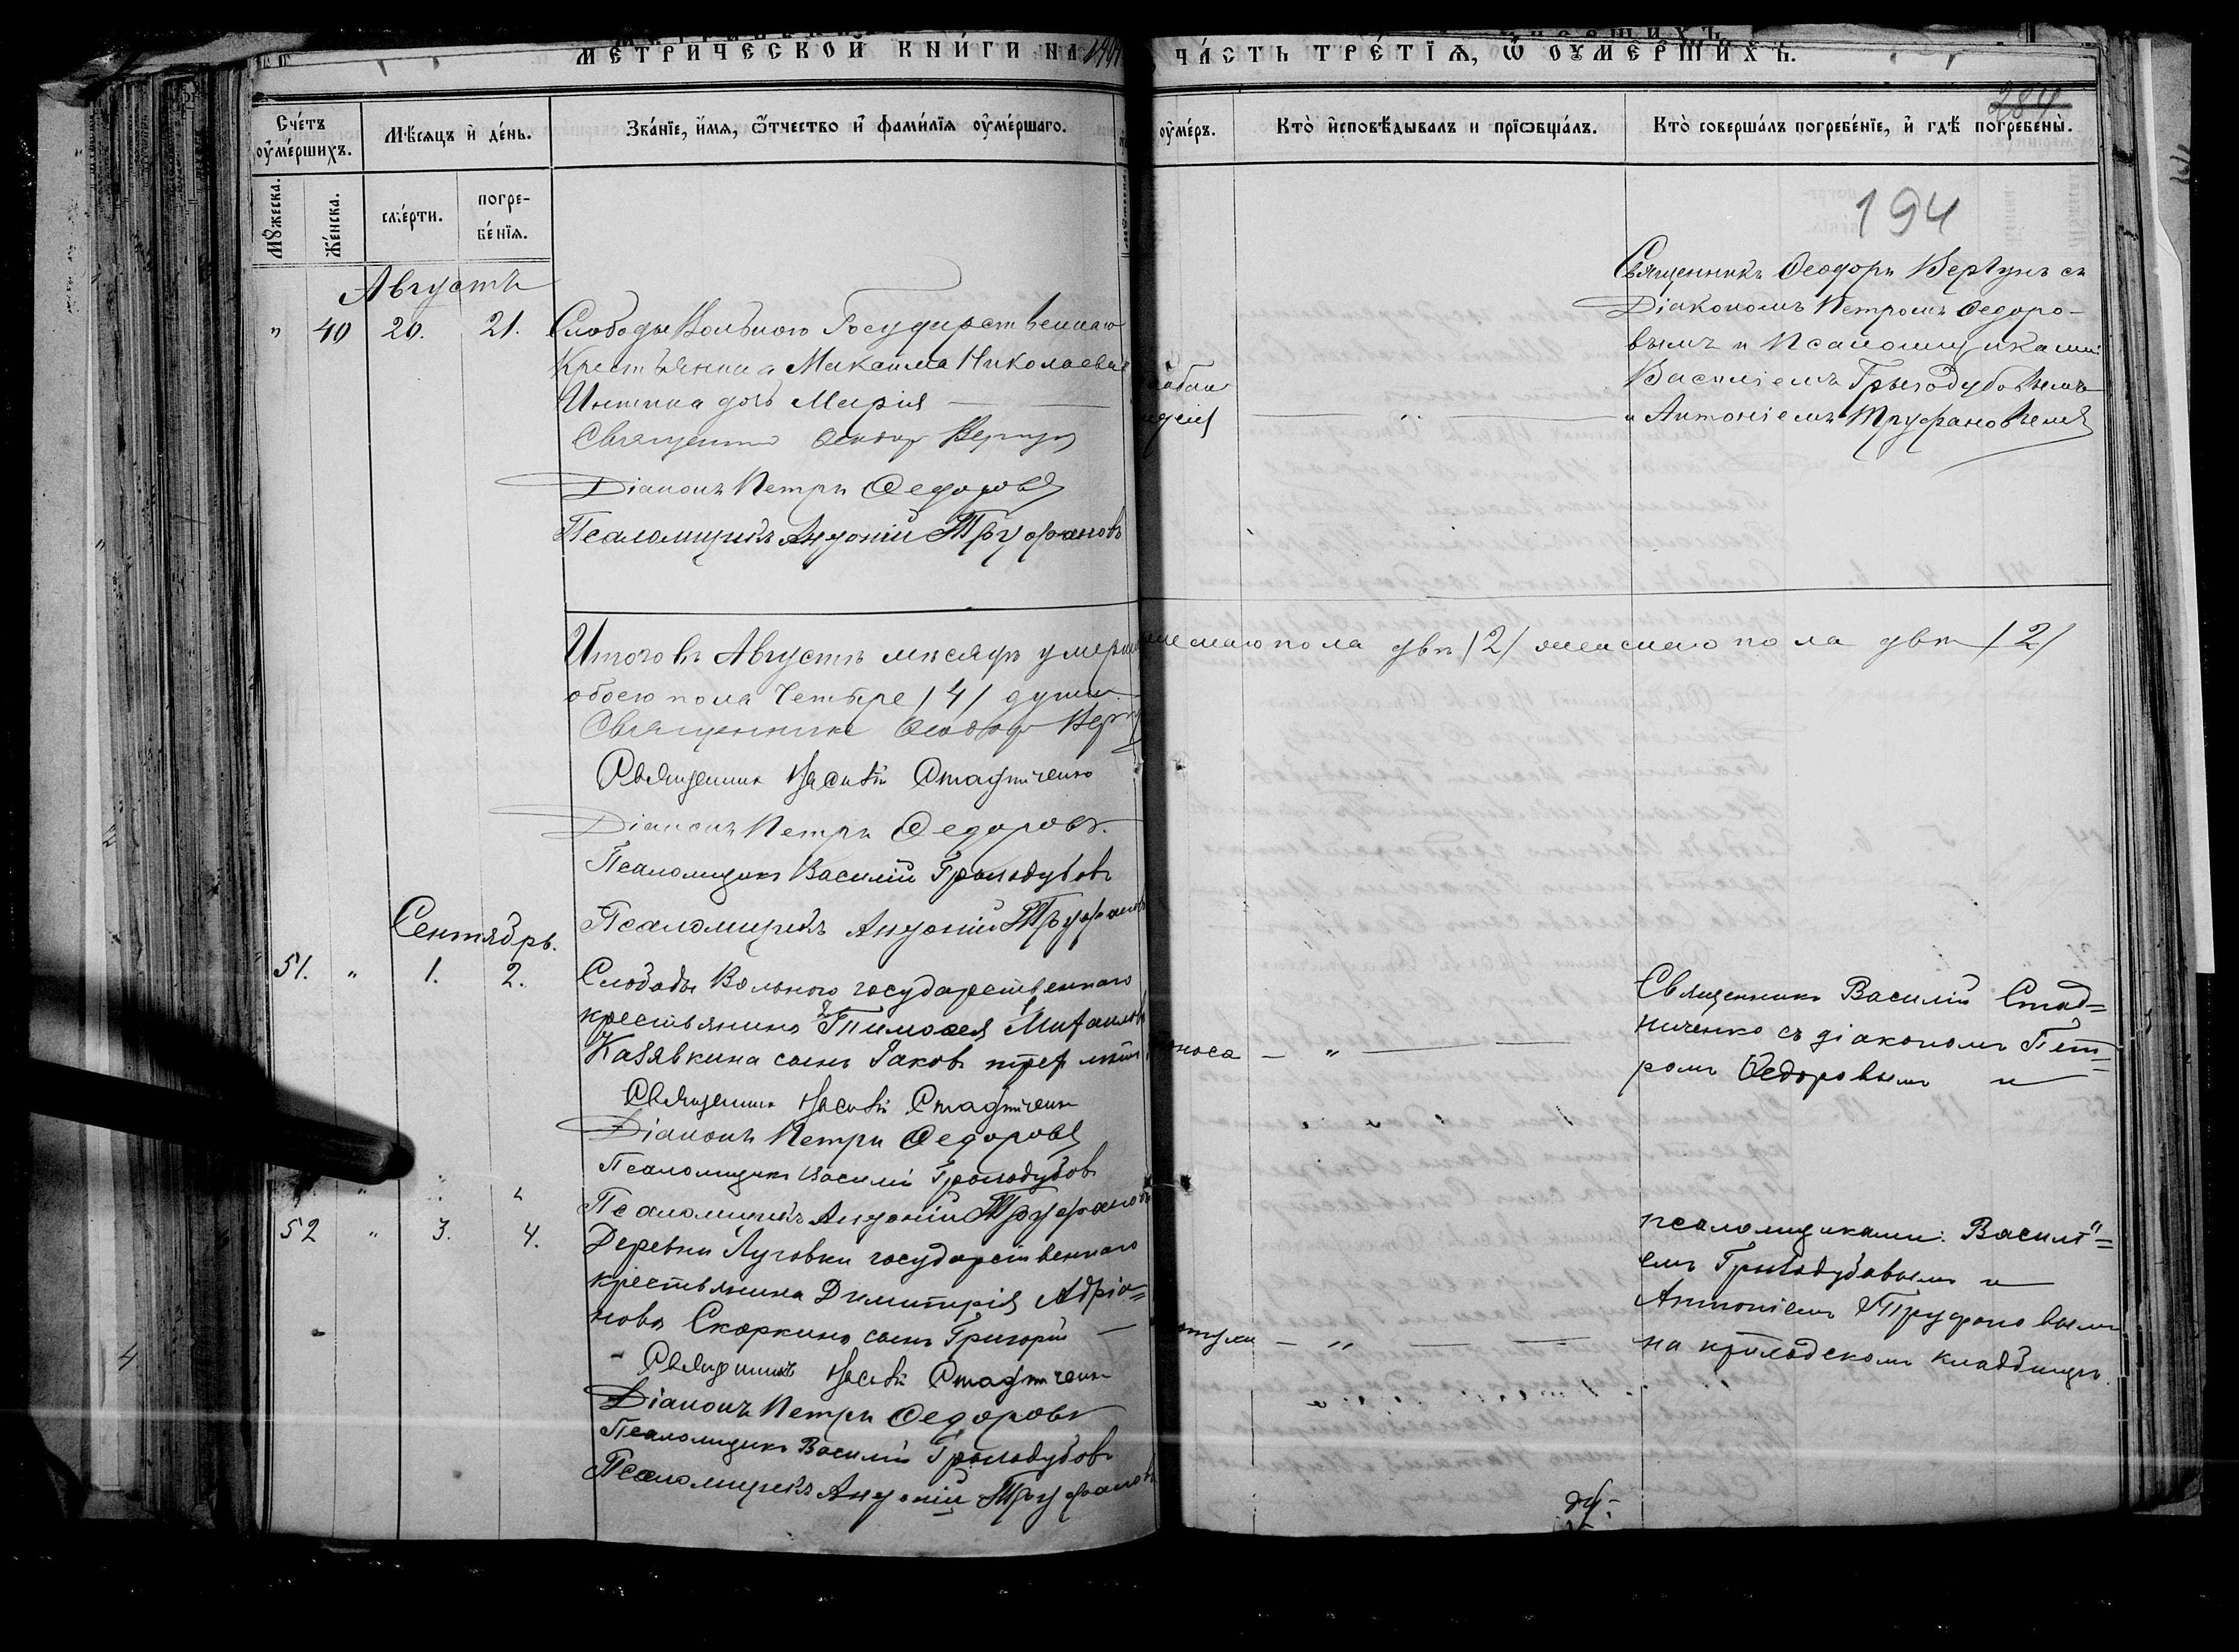 МЕТРИЧЕСКОЙ КНИ́ГИ НА
ЧА́СТЬ ТРЕ́ТІѦ, Ѿ ОУМЕ́РШИХЪ.
284
Сче́тъ оу҆ме́ршихъ.
Мѣ́сѧцъ и҆ де́нь.
Зва́нїе, и҆́мѧ, ѻ҆́тчество и҆ фами́лїѧ оу҆ме́ршаго.
оу҆ме́ръ.
Кто̀ и҆сповѣ́дывалъ и прїѡбща́лъ.
Кто̀ соверша́лъ погребе́нїе, и҆ гдѣ̀ погребены̀.
Мꙋ́жеска.
Же́нска.
сме́рти.
погре-
бе́нїѧ.
194
Августъ
" 40 20. 21.
Слободы Вольного Государственнаго
Крестьянина Максима Николаева
дочь Марія
Священникъ Ѳеодоръ Вергунъ
Діаконъ Петръ Ѳедоровъ
Псаломщикъ Антоній Труфановъ
Священникъ Ѳеодоръ Вергунъ съ
Діакономъ Петромъ Ѳедоро-
вымъ и Псаломщиками
Василіемъ
и Антоніемъ Труфановымъ
Итого въ Августѣ месяцѣ умерло
пола два /2/ женскаго пола две /2/
обоего пола Четыре /4/ души.
Священникъ Ѳеодоръ Вергунъ
Священникъ Василій Стадниченко
Діаконъ Петръ Ѳедоровъ.
Псаломщикъ Василій
Псаломщикъ Антоній Труфановъ
Сентябрь.
51. " 1. 2.
Слободы Вольного государственнаго
крестьянина Тимоѳея Михаилова
Казявкина сынъ Іаковъ трех лѣтъ
поноса — " —
Священникъ Василій Стадниченко
Діаконъ Петръ Ѳедоровъ
Псаломщикъ Василій
Псаломщикъ Антоній Труфановъ
Священникъ Василій Стад=
ниченко съ діакономъ Пет=
ромъ Ѳедоровымъ и
52 " 3. 4.
Деревни Луговки государственнаго
крестьянина Димитрія Адріа=
нова Скоркина сынъ Григорій —
— " —
Священникъ Василій Стадниченко
Діаконъ Петръ Ѳедоровъ
Псаломщикъ Василій
Псаломщикъ Антоній Труфановъ
псаломщиками: Васили=
емъ и
Антоніемъ Труфановымъ
на приходскомъ кладбищѣ.